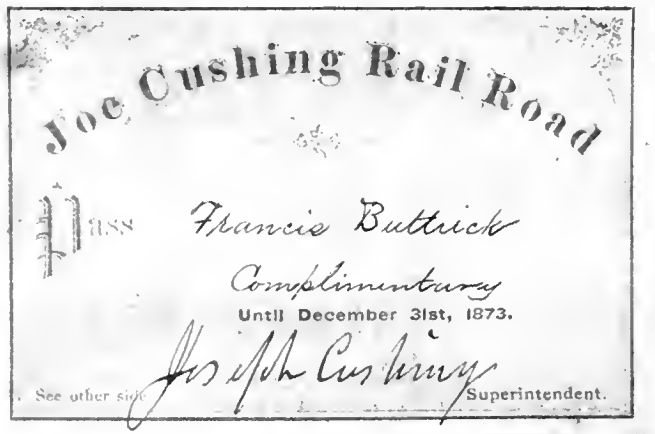 Joe Cushing Rail Road
Pass Francis Buttrick
Complimentary
Until December 31st, 1873.
Joseph Cushing
See other side Superintendent.